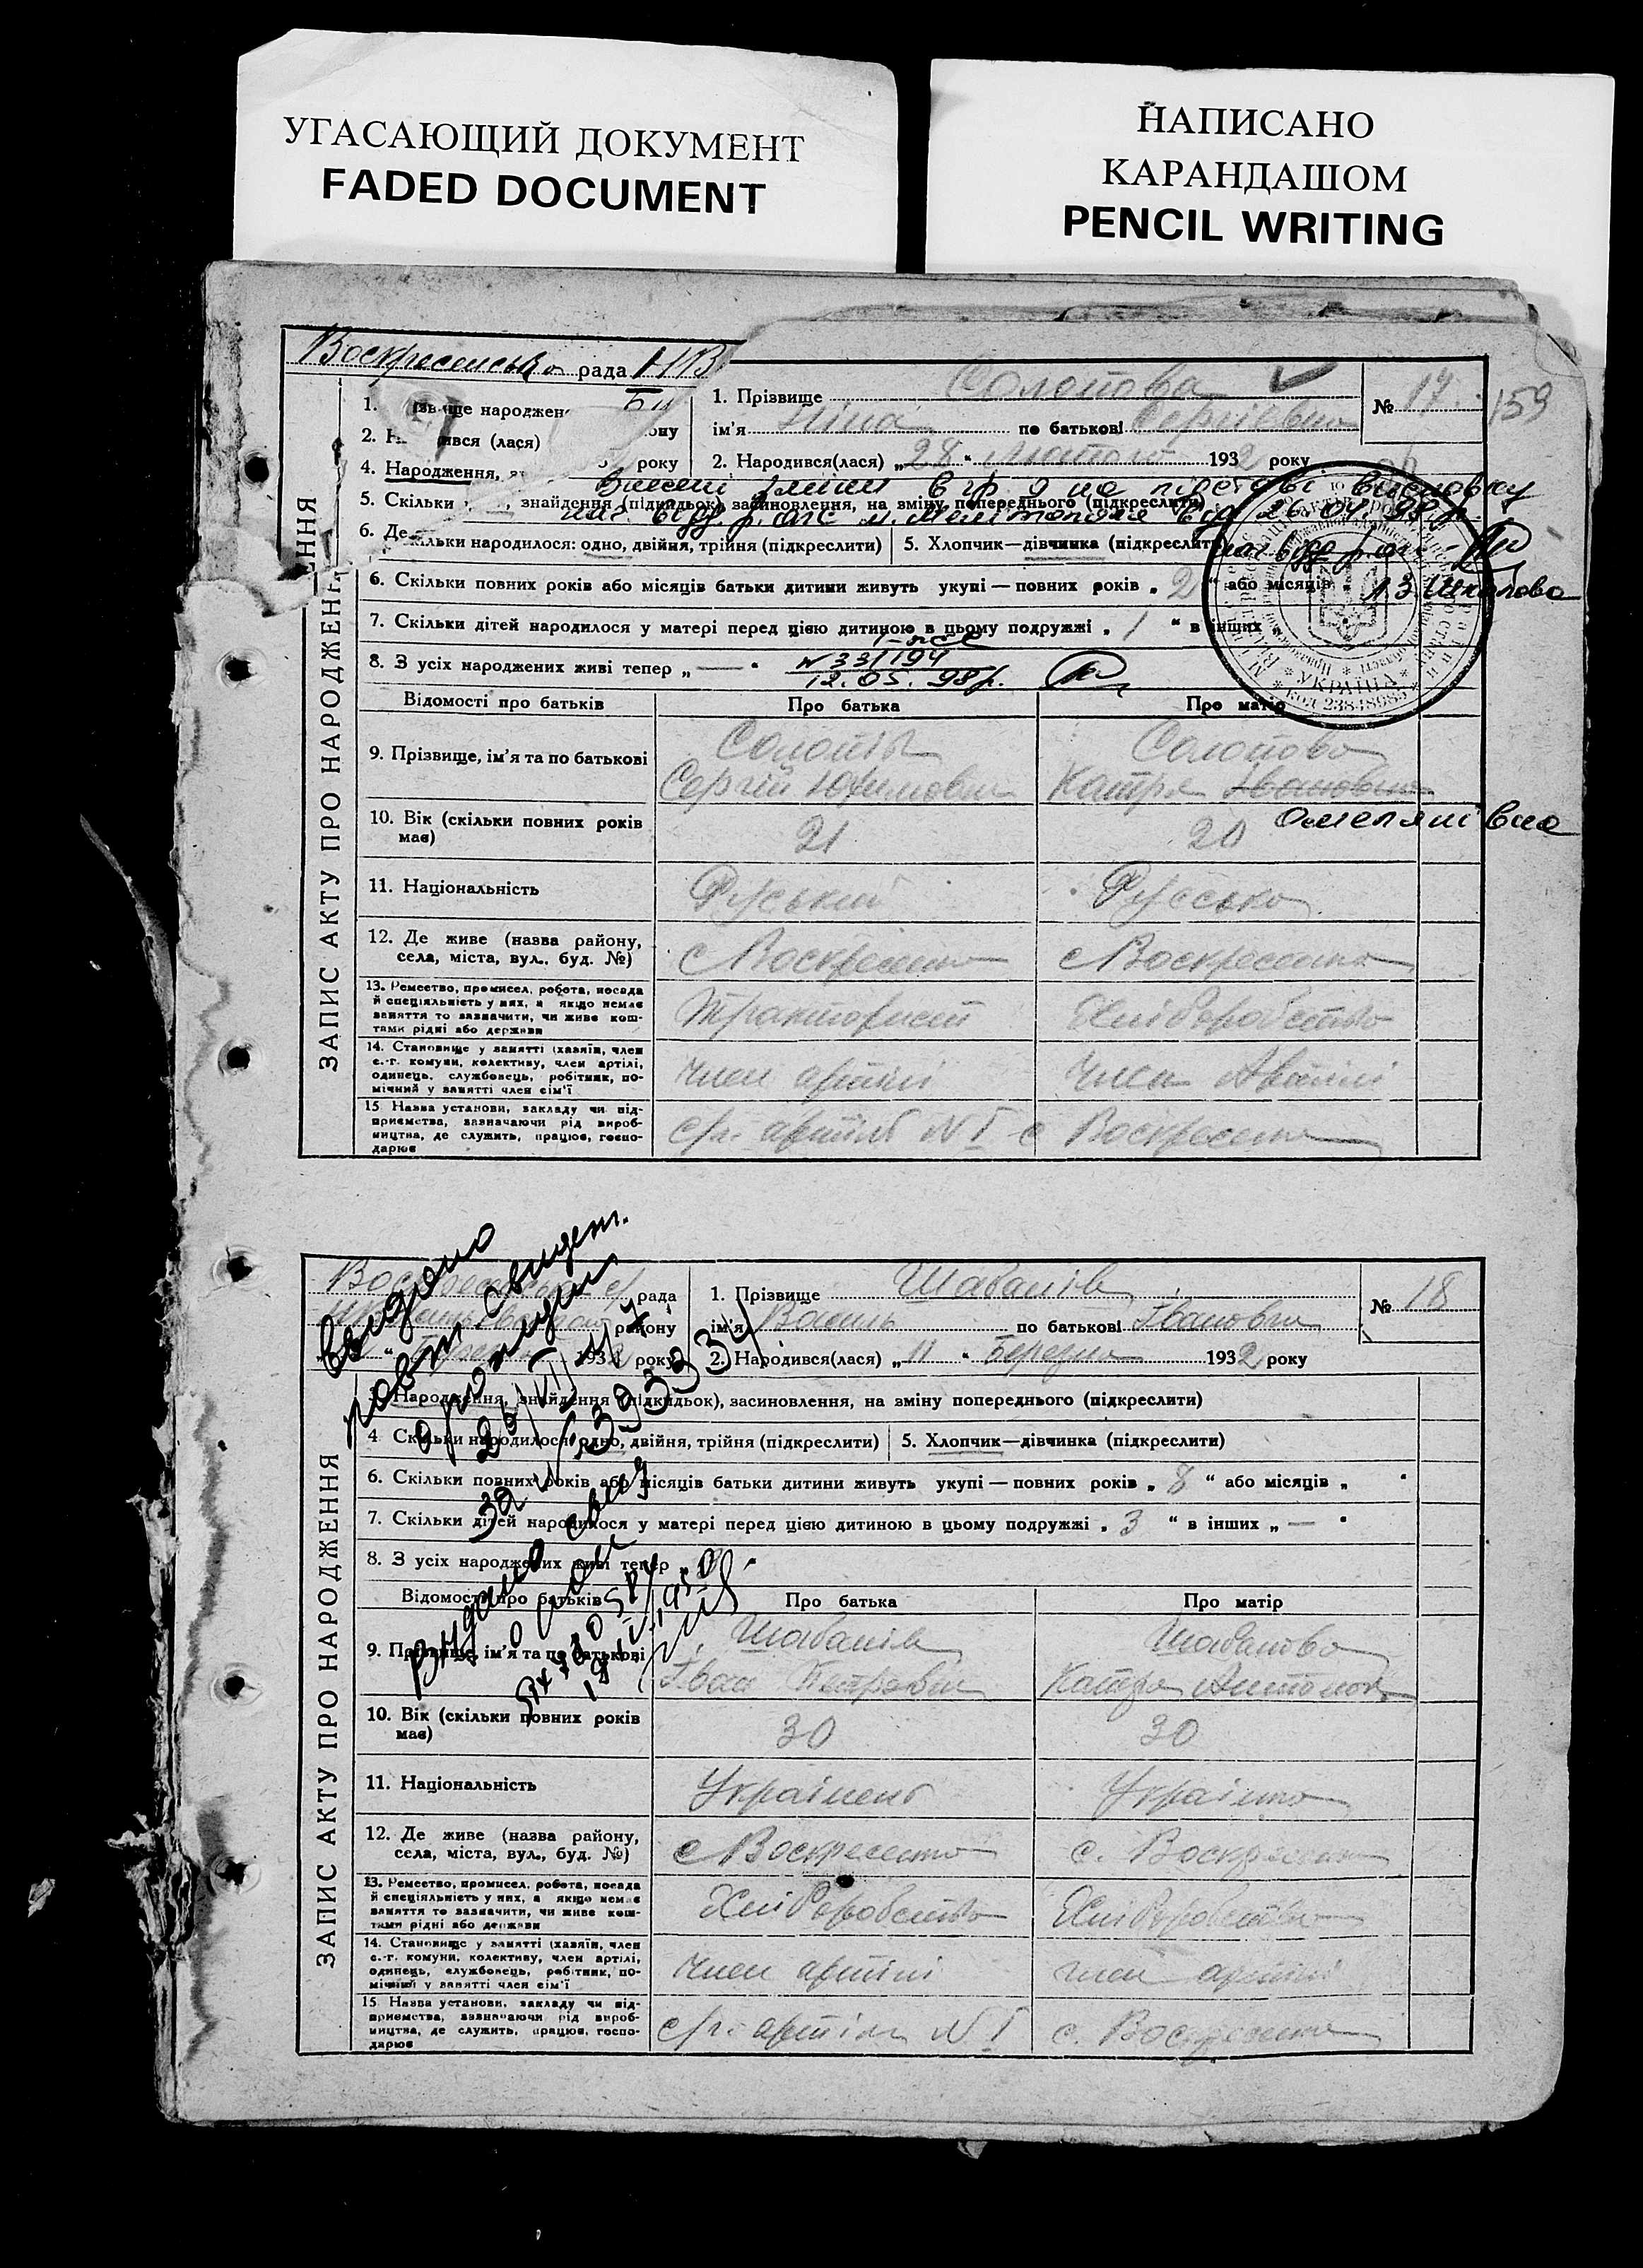 УГАСАЮЩИЙ ДОКУМЕНТ
FADED DOCUMENT
НАПИСАНО
КАРАНДАШОМ
PENCIL WRITING
Воскресенська рада
1. Прізвище Солопова
№ 17
159
ім'я Ніна по батькові Сергіївна
2. Народився(лася) „28 “ Лютого 1932 року
4. Народження,
року
5. Скільки знайдення (підкидьок), засиновлення, на зміну попереднього (підкреслити)
Внесені зміни в гр 9 на підставі висновку
від 26.04.98р.
Скільки народилося: одно, двійня, трійня (підкреслити)
5. Хлопчик—дівчинка (підкреслити)
6. Скільки повних років або місяців батьки дитини живуть укупі — повних років „ 2 “ або місяців „
7. Скільки дітей народилося у матері перед цією дитиною в цьому подружжі „ 1 “ в інших
8. З усіх народжених живі тепер „ — “
№ 331194
12.05.98р.
УКРАЇНА
Відомості про батьків
Про батька
Про матір
9. Прізвище, ім'я та по батькові
Солопів
Сергій Юхимович
Солопова
Катря Івановна
Омелянівна
10. Вік (скільки повних років має)
21
20
11. Національність
Руський
Руська
12. Де живе (назва району, села, міста, вул., буд. №)
с Воскресенка
с Воскресенка
13. Ремество, промисел, робота, посада й спеціяльність у них, а якщо немає заняття то зазначити, чи живе коштами рідні або держави
Тракторист
Хліборобство
14. Становище у занятті (хазяїн, член с.-г. комуни, колективу, член артілі, одинець, службовець, робітник, помічний у занятті член сім'ї
член артілі
член Артілі
15 Назва установи, закладу чи підприємства, зазначаючи рід виробництва, де служить, працює, господарює
с/г. артіль № 1
с Воскресенка
ЗАПИС АКТУ ПРО НАРОДЖЕННЯ
Воскресенська с/рада
району
1932 року
1. Прізвище Шабанів
№ 18
ім'я Василь по батькові Іванович
2. Народився(лася) „11 “ Березня 1932 року
Видано
повт. свидет.
о рожден
3. Народження, знайдення (підкидьок), засиновлення, на зміну попереднього (підкреслити)
4 Скільки народилося: одно, двійня, трійня (підкреслити)
5. Хлопчик—дівчинка (підкреслити)
6. Скільки повних років або місяців батьки дитини живуть укупі — повних років „ 8 “ або місяців „ “
7. Скільки дітей народилося у матері перед цією дитиною в цьому подружжі „ 3 “ в інших „ — “
8. З усіх народжених живі тепер
Відомості про батьків
Про батька
Про матір
9. Прізвище, ім'я та по батькові
Шабанів
Іван Петрович
Шабанова
Катря Антонов
10. Вік (скільки повних років має)
30
30
11. Національність
Українець
Українка
12. Де живе (назва району, села, міста, вул., буд. №)
с Воскресенка
с. Воскресенка
13. Ремество, промисел, робота, посада й спеціяльність у них, а якщо немає заняття то зазначити, чи живе коштами рідні або держави
Хліборобство
Хліборобство
14. Становище у занятті (хазяїн, член с.-г. комуни, колективу, член артілі, одинець, службовець, робітник, помічний у занятті член сім'ї
член артілі
член артілі
15 Назва установи, закладу чи підприємства, зазначаючи рід виробництва, де служить, працює, господарює
с/г. артіль № 1
с. Воскресенка
ЗАПИС АКТУ ПРО НАРОДЖЕННЯ